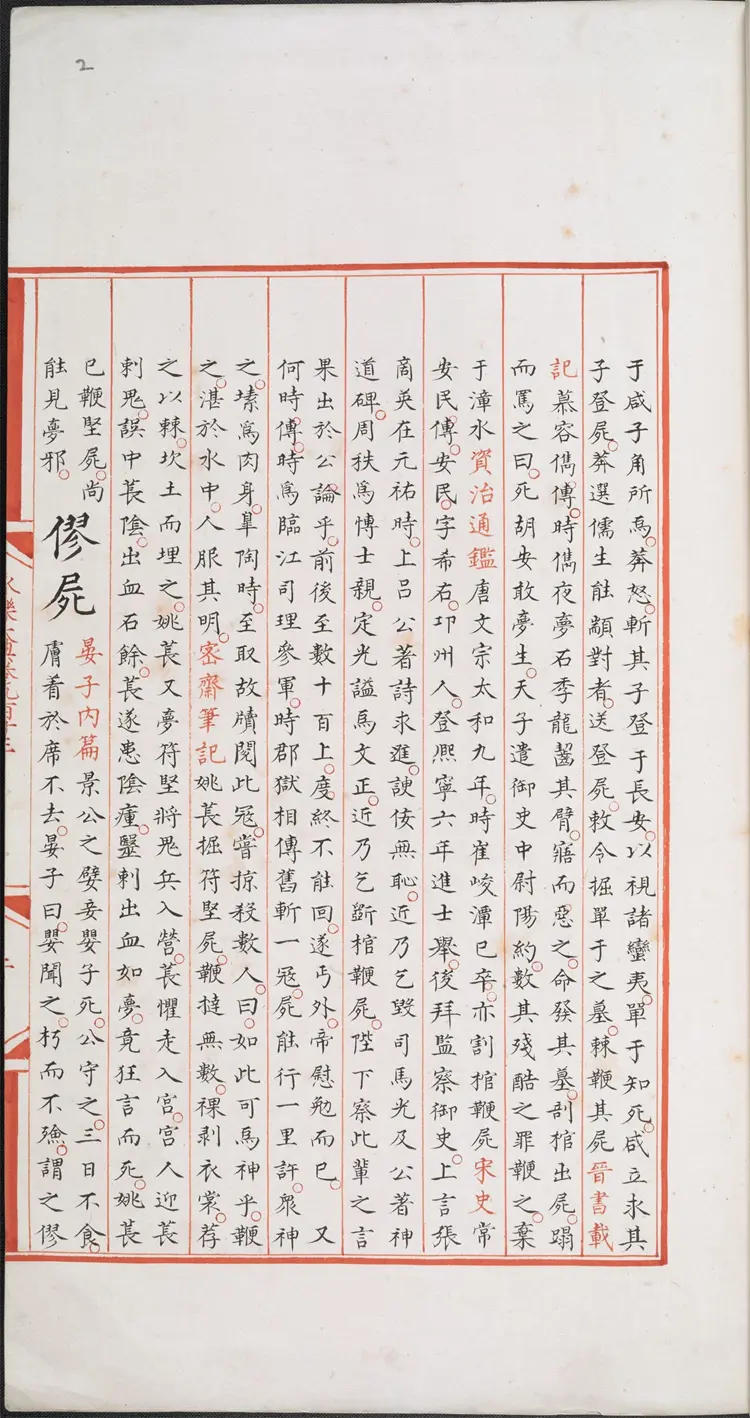 2
于咸子角所為。莽怒。斬其子登于長安。以視諸蠻夷。單于知死。咸立求其
子登屍。莽選儒生能顓對者。送登屍。敕令掘單于之墓。棘鞭其屍晉書載
記慕容儁傳。時儁夜夢石季龍齧其臂。寤而惡之。命發其墓。剖棺出屍。蹋
而罵之曰。死胡安敢夢生。天子遣御史中尉陽約。數其殘酷之罪鞭之。棄
于漳水資治通鑑唐文宗太和九年。時崔峻潭已卒。亦割棺鞭屍宋史常
安民傳。安民。字希右。邛州人。登熈寧六年進士舉。後拜監察御史。上言張
商英在元祐時。上呂公著詩求進。諛佞無恥。近乃乞毀司馬光及公著神
道碑。周秩為愽士親。定光謚為文正。近乃乞斵棺鞭屍。陛下察此輩之言
果出於公論乎。前後至數十百上。度終不能回。遂丐外。帝慰勉而已。又
何時傳。時為臨江司理參軍。時郡獄相傳舊斬一冦。屍能行一里許。衆神
之。塐為肉身。臯陶時。至取故牘閱此冦。嘗掠殺數人。曰。如此可為神乎。鞭
之。湛於水中。人服其明。密齋筆記姚萇掘符堅屍。鞭撻無數。裸剥衣裳。荐
之以棘。坎土而埋之。姚萇又夢符堅將鬼兵入營。萇懼走入宮。宮人迎萇
刺鬼。誤中萇陰。出血石餘。萇遂患陰瘇。毉刺出血如夢。竟狂言而死。姚萇
已鞭堅屍。尚
能見夢邪。
僇屍
晏子内篇景公之嬖妾嬰子死。公守之。三日不食。
膚着於席不去。晏子曰。嬰聞之。朽而不殮。謂之僇